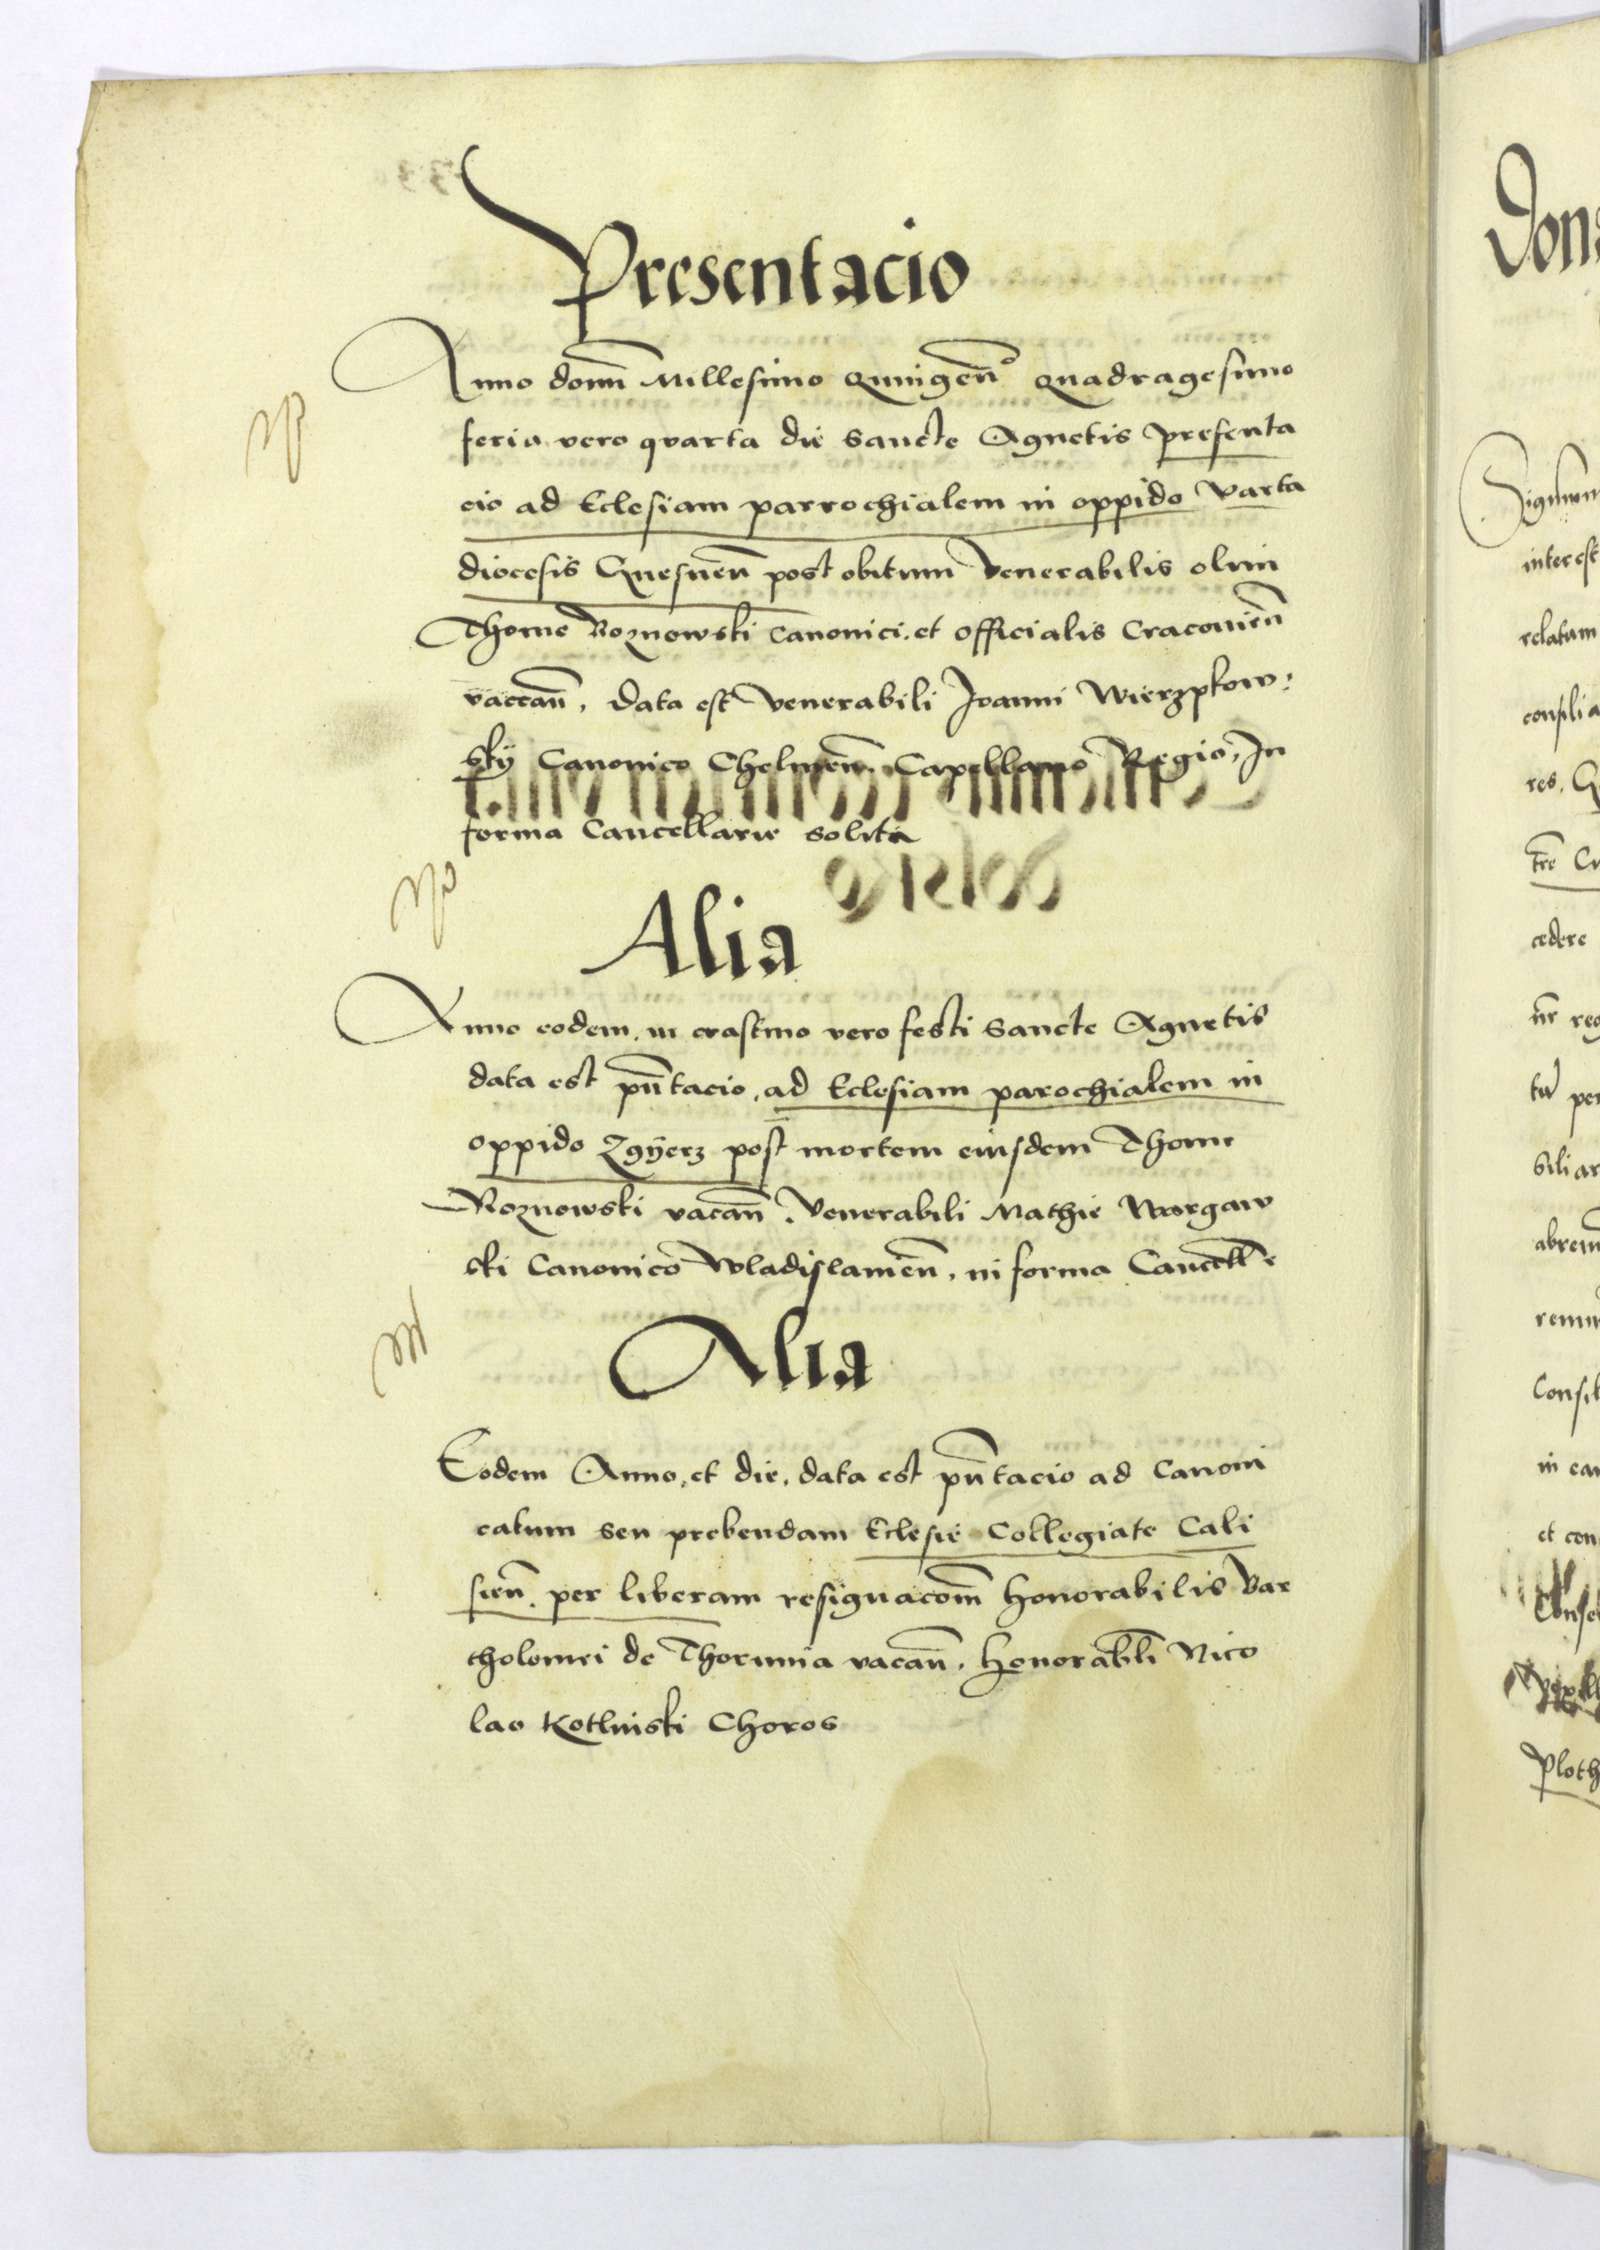 Presentacio
Anno domi Millesimo quingen° quadragesimo
feria vero qvarta die sancte Agnetis presenta
cio ad Eclesiam parrochialem in oppido Varta
diocesis Gnesnen post obitum Venerabilis olim
Thome Roznowski canonici et officialis Cracovien
vaccan, data est Venerabili Joanni Wierzpkow:
skÿ Canonico Chelmen Capellano Regio, In
forma Cancellarie solita
Alia
Anno eodem in crastino vero festi sancte Agnetis
data est pntacio, ad Eclesiam parochialem in
oppido Zgÿerz post mortem eiusdem Thome
Roznowski vacan. Venerabili Mathie Wargaw
ski Canonico Wladislamien, in forma Cancell
Alia
Eodem Anno, et die, data est pntacio ad Canoni
catum seu prebendam Eclesie Collegiate Cali
sien. per liberam resignacom honorabilis Bar
tholomei de Thorunia vacan, honorabli Nico
lao Kotlinski Choros
Sigmun
interest
relatum
consilia
res. G
cedere
nr reg
tur per
bili ar
Consil
in ca
et con
Ploth